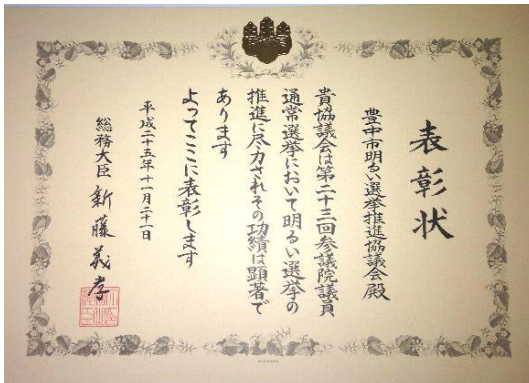 表彰状
豊中市明るい選挙推進協議会殿
貴協議会は第二十三回参議院議員
通常選挙において明るい選挙の
推進に尽力されその功績は顕著で
あります
よってここに表彰します
平成二十五年十一月二十一日
総務大臣 新藤義孝